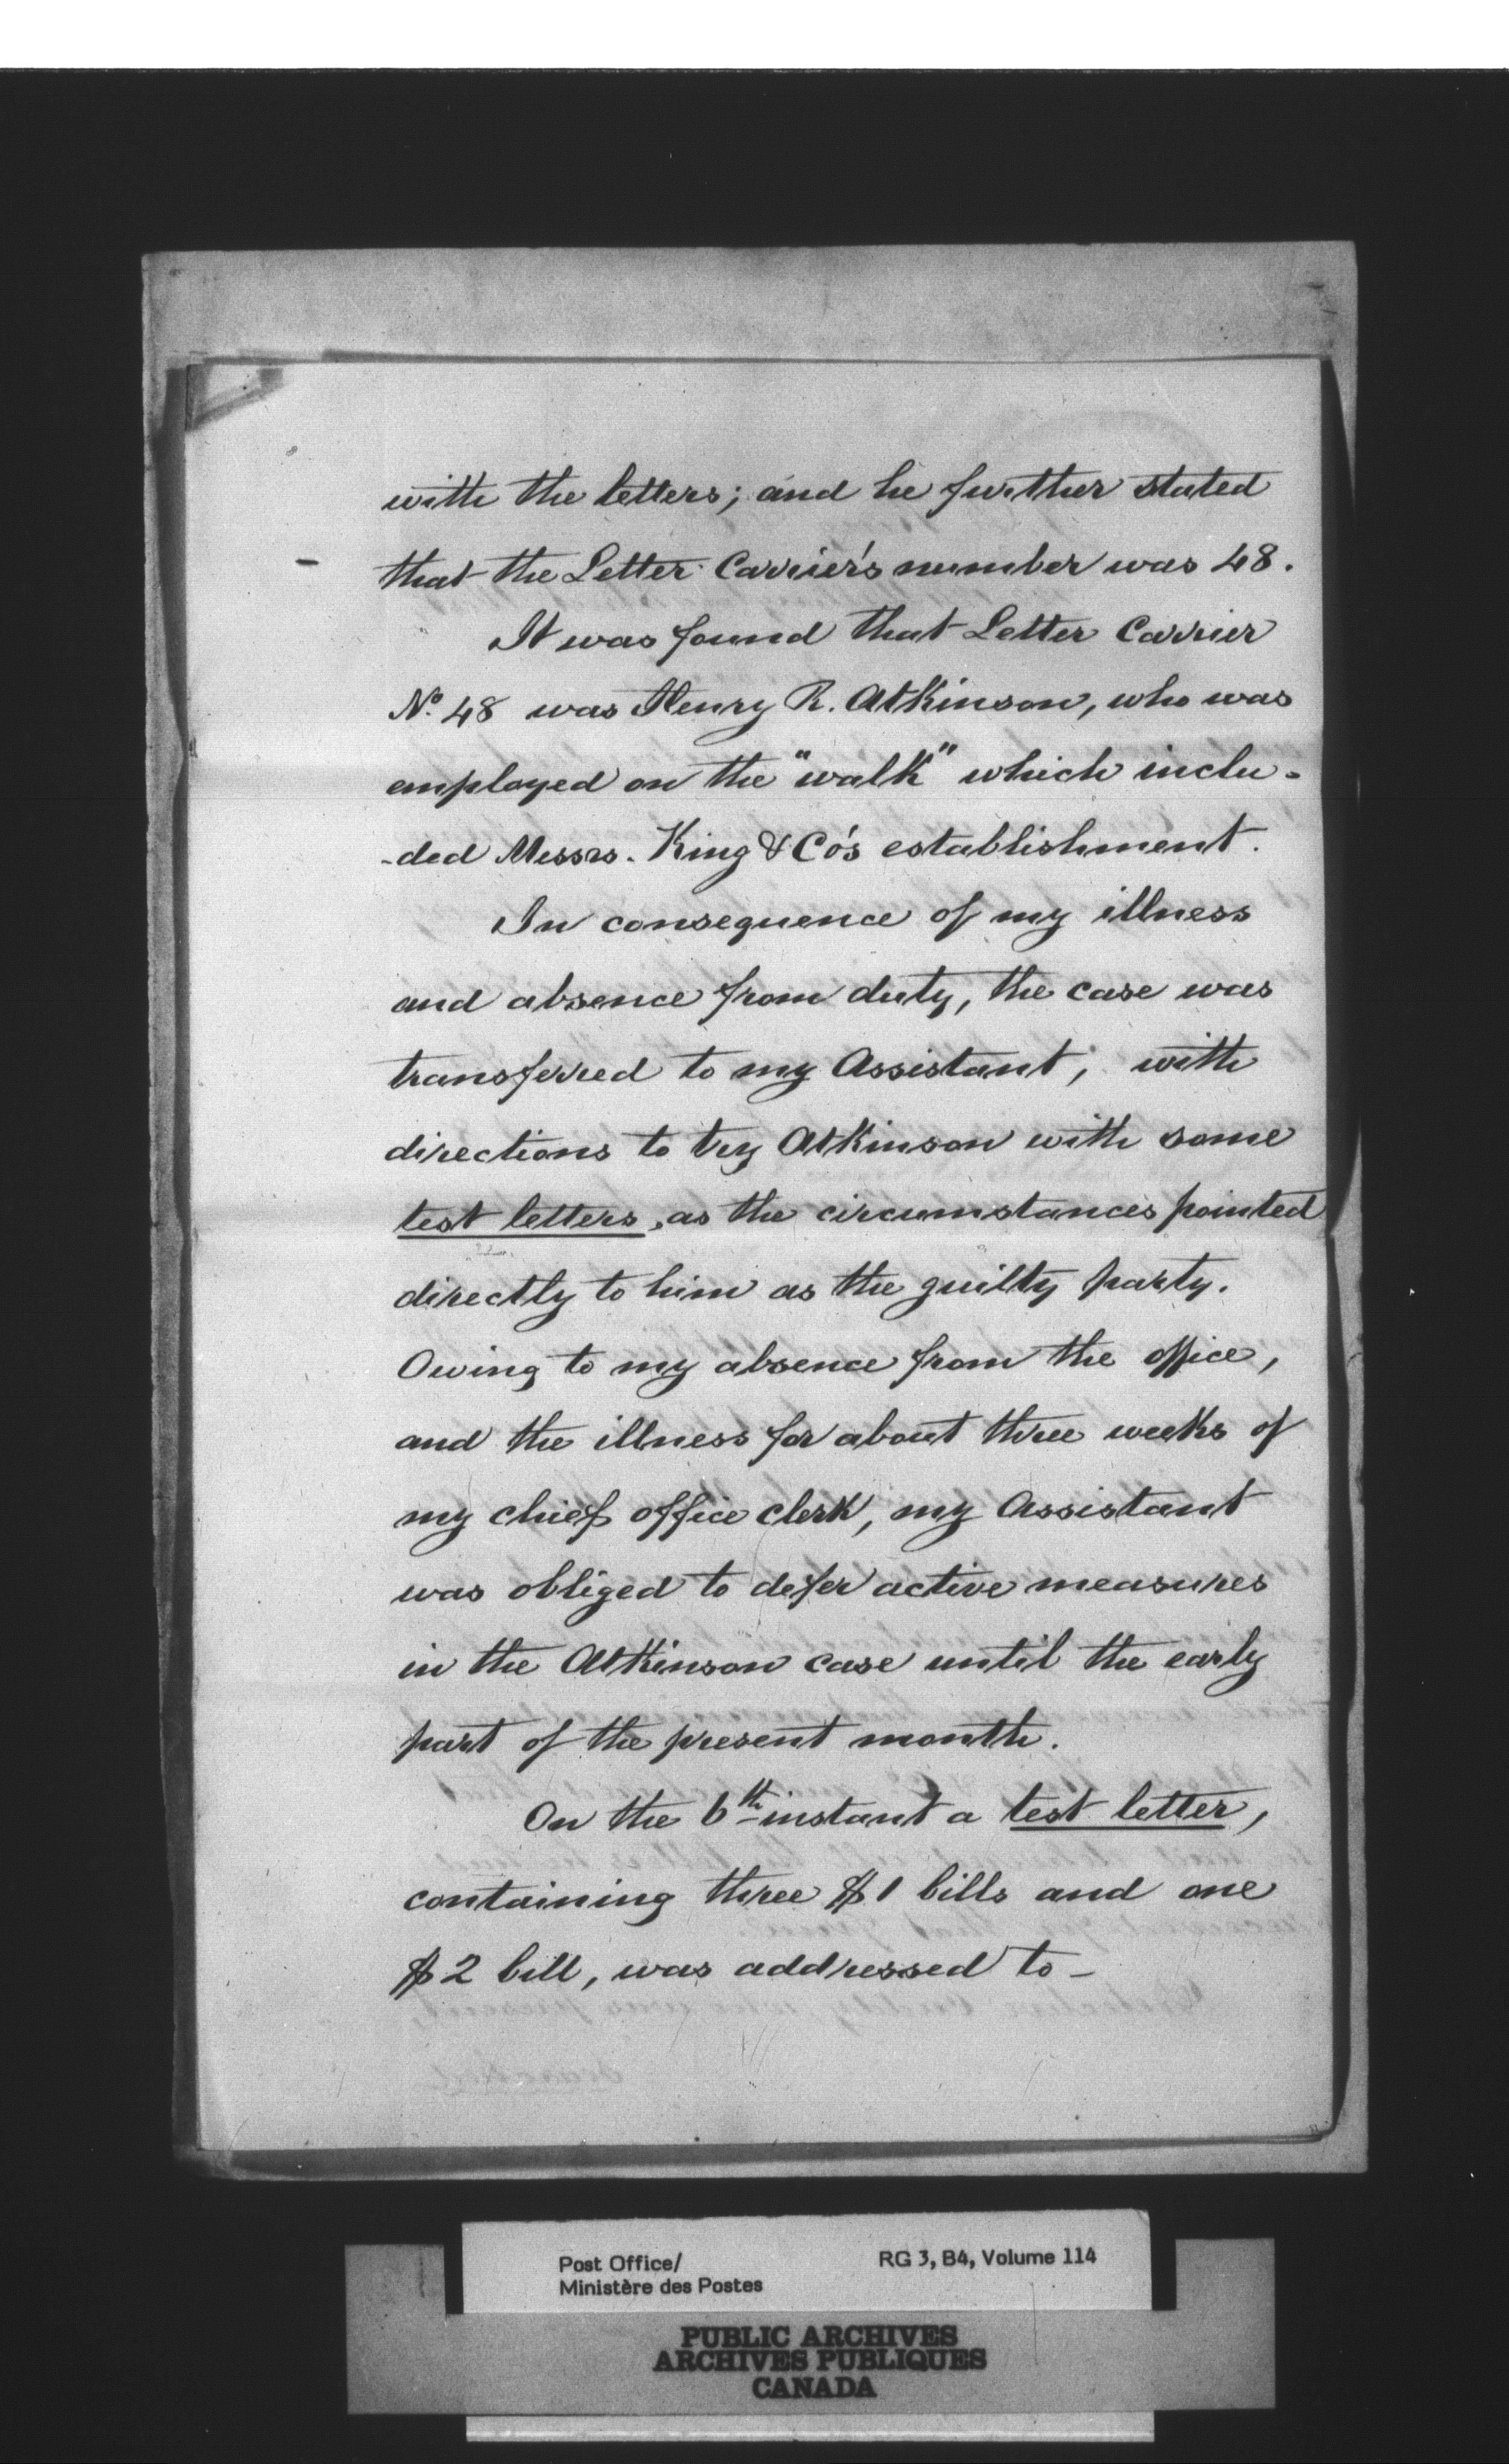 with the letters; and he further stated
that the Letter Carrier's number was 48.
It was found that Letter Carrier
No. 48 was Henry R. Atkinson, who was
employed on the "walk" which inclu-
-ded Messrs. King & Co's establishment.
In consequence of my illness
and absence from duty, the case was
transferred to my Assistant, with
directions to try Atkinson with some
test letters, as the circumstances pointed
directly to him as the guilty party.
Owing to my absence from the office,
and the illness for about three weeks of
my chief office clerk, my Assistant
was obliged to defer active measures
in the Atkinson case until the early
part of the present month.
On the 6th instant a test letter,
containing three $1 bills and one
$2 bill, was addressed to -
Post Office/
Ministère des Postes
RG 3, B4, Volume 114
PUBLIC ARCHIVES
ARCHIVES PUBLIQUES
CANADA